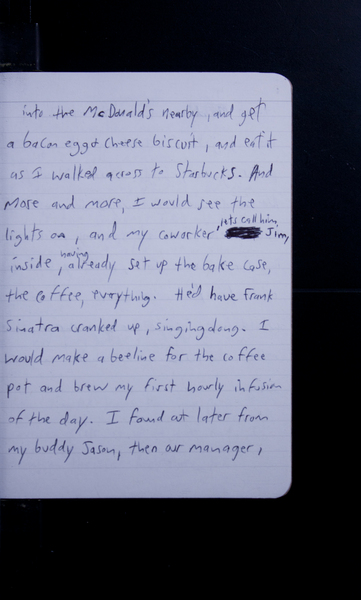 into the McDonald's nearby, and get
a bacon egg & cheese biscuit, and eat it
as I walked across to Starbucks. And
more and more, I would see the
lets call him,
lights on, and my coworker Jim,
having
inside, already set up the bake case,
the coffee, everything. He'd have Frank
Sinatra cranked up, singing along. I
would make a beeline for the coffee
pot and brew my first hourly infusion
of the day. I found out later from
my buddy Jason, then our manager,